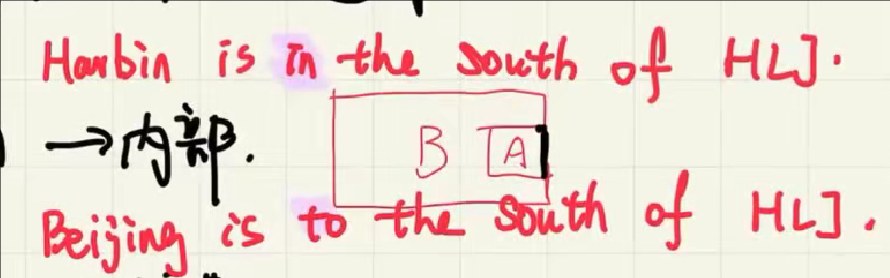 Harbin is in the south of HLJ.
→内部.
B A
Beijing is to the south of HLJ.